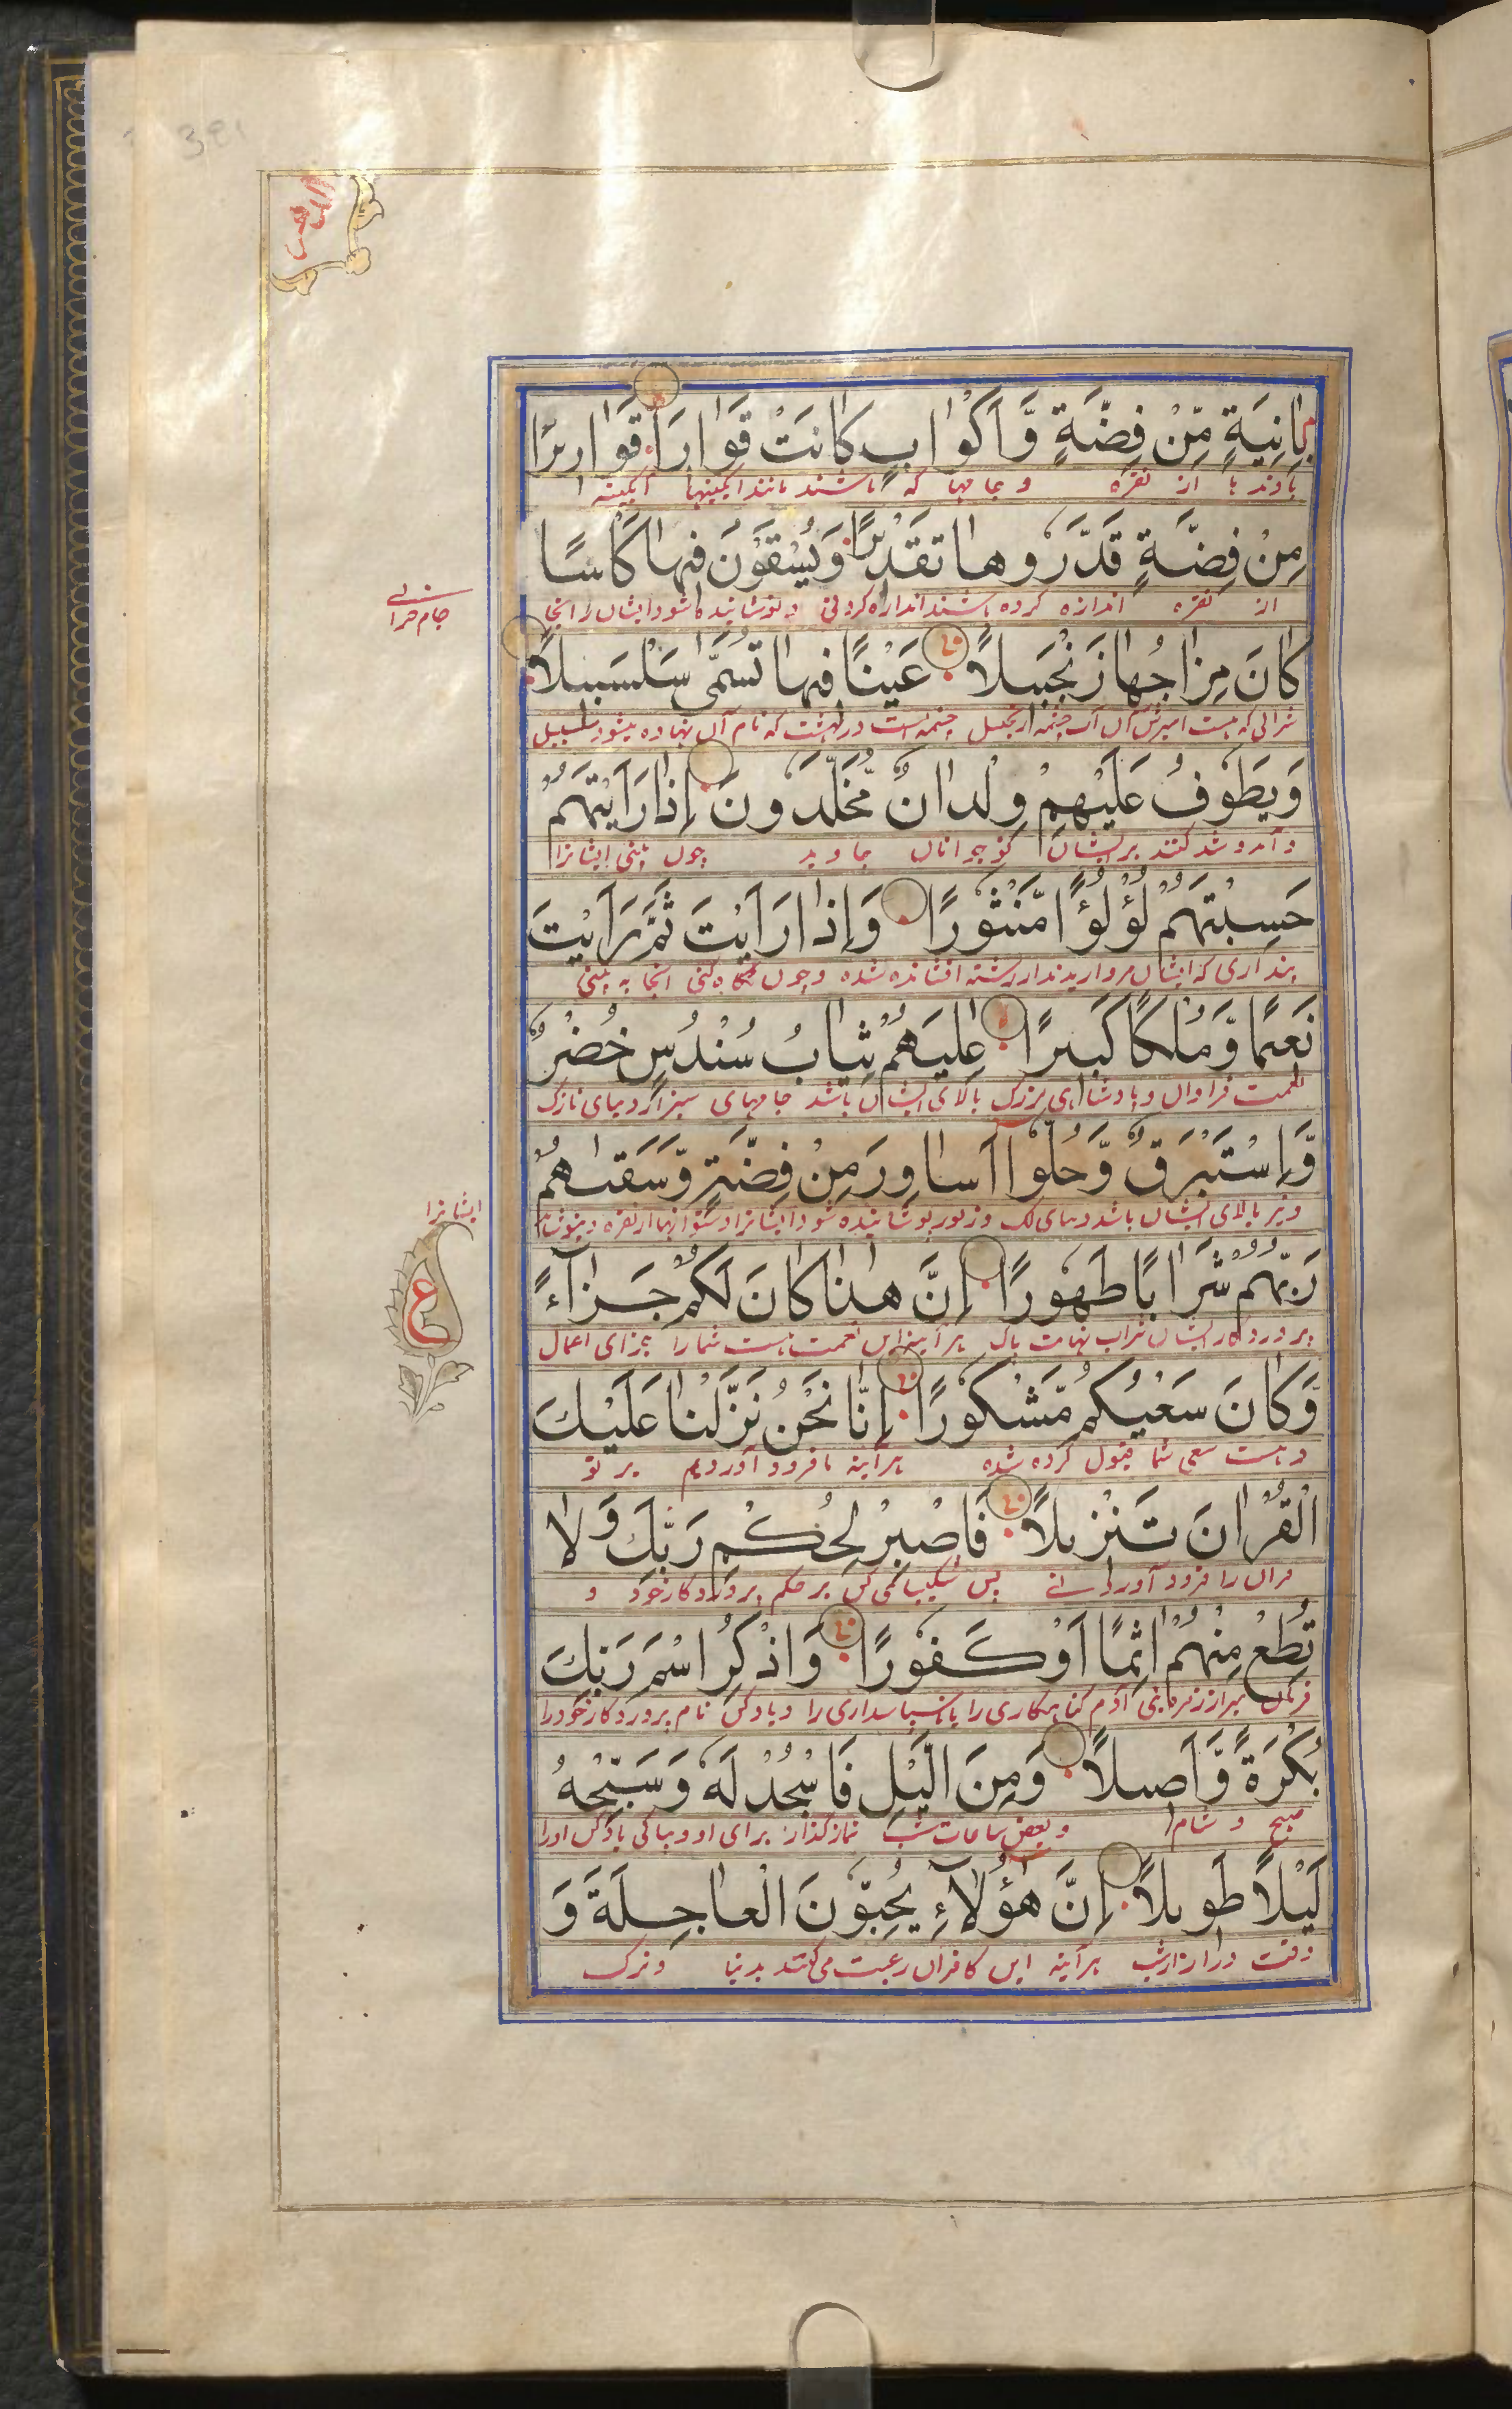 الدهر
بِاٰنِيَةٍ مِّنْ فِضَّةٍ وَّاَكْوَابٍ كَانَتْ قَوَارِيرَا۠ قَوَارِيرَا۠
از نقره و جامها که باشند مانند آبگینها آبگینه
مِنْ فِضَّةٍ قَدَّرُوهَا تَقْدِيْرًا وَيُسْقَوْنَ فِيهَا كَاْسًا
از نقره اندازه کرده باشند اندازه کردنی و نوشانیده شود ایشان را آنجا
جام شرابی
كَانَ مِزَاجُهَا زَنْجَبِيلًا عَيْنًا فِيهَا تُسَمّٰى سَلْسَبِيلًا
شرابی که هست آمیزش آن آب چشمه زنجبیل چشمه است در بهشت که نام آن نهاده میشود سلسبیل
وَيَطُوْفُ عَلَيْهِمْ وِلْدَانٌ مُّخَلَّدُونَ اِذَا رَاَيْتَهُمْ
و آمد و شد کنند بر ایشان نوجوانان جاوید چون بینی ایشانرا
حَسِبْتَهُمْ لُؤْلُؤًا مَّنْثُوْرًا وَاِذَا رَاَيْتَ ثَمَّ رَاَيْتَ
پنداری که ایشان مروارید از رشته افشانده شده و چون نگاه کنی آنجا به بینی
نَعِيمًا وَّمُلْكًا كَبِيرًا عٰلِيَهُمْ ثِيَابُ سُنْدُسٍ خُضْرٌ
نعمت فراوان و پادشاهی بزرگ بالای ایشان باشد جامهای سبز از دیبای نازک
وَّاِسْتَبْرَقٌ وَّحُلُّوْا اَسَاوِرَ مِنْ فِضَّةٍ وَّسَقٰىهُمْ
و نیز بالای ایشان باشد دیبای لک و زیور پوشانیده شود ایشانرا دستوانها از نقره و بنوشاند
ایشانرا
رَبُّهُمْ شَرَابًا طَهُوْرًا اِنَّ هٰذَا كَانَ لَكُمْ جَزَآءً
پروردگار ایشان شراب نهایت پاک هر آیینه این نعمت هست شما را جزای اعمال
ع
وَّكَانَ سَعْيُكُمْ مَّشْكُوْرًا اِنَّا نَحْنُ نَزَّلْنَا عَلَيْكَ
و هست سعی شما قبول کرده شده هر آینه ما فرود آوردیم بر تو
الْقُرْاٰنَ تَنْزِيلًا فَاصْبِرْ لِحُكْمِ رَبِّكَ وَلَا
قرآن را فرود آوردنی پس شکیبائی کن بر حکم پروردگار خود و
تُطِعْ مِنْهُمْ اٰثِمًا اَوْ كَفُوْرًا وَاذْكُرِ اسْمَ رَبِّكَ
آدم گناهکاری را یا ناسپاسداری را و یاد کن نام پروردگار خود را
بُكْرَةً وَّاَصِيلًا وَمِنَ الَّيْلِ فَاسْجُدْ لَهٗ وَسَبِّحْهُ
صبح و شام و بعض ساعات شب نماز گذار برای او و بپاکی یاد کن اورا
لَيْلًا طَوِيلًا اِنَّ هٰٓؤُلَآءِ يُحِبُّوْنَ الْعَاجِلَةَ وَ
وقت دراز از شب هر آینه این کافران رغبت می کنند بدنیا و ترک